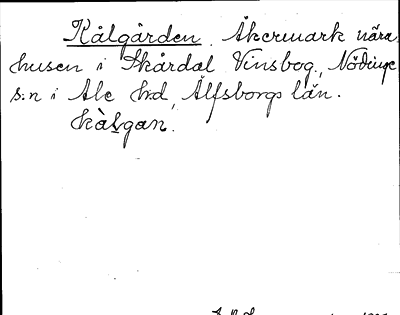 Kålgården. Åkermark nära
husen i Skårdal Vinsbog., Nödinge
s:n i Ale h:d, Älfsborgs län.
kàlgan.